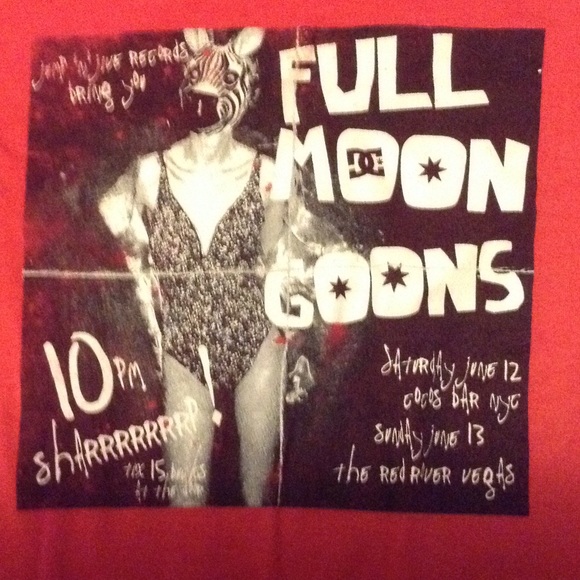 JUMP 'N' JIVE RECORDS
bring you
FULL
MOON
GOONS
10 PM
shARRRRRRRP!
tix 15 bucks
at the door
SATURDAY JUNE 12
COCOS BAR NYC
SUNDAY JUNE 13
the RED RIVER VEGAS